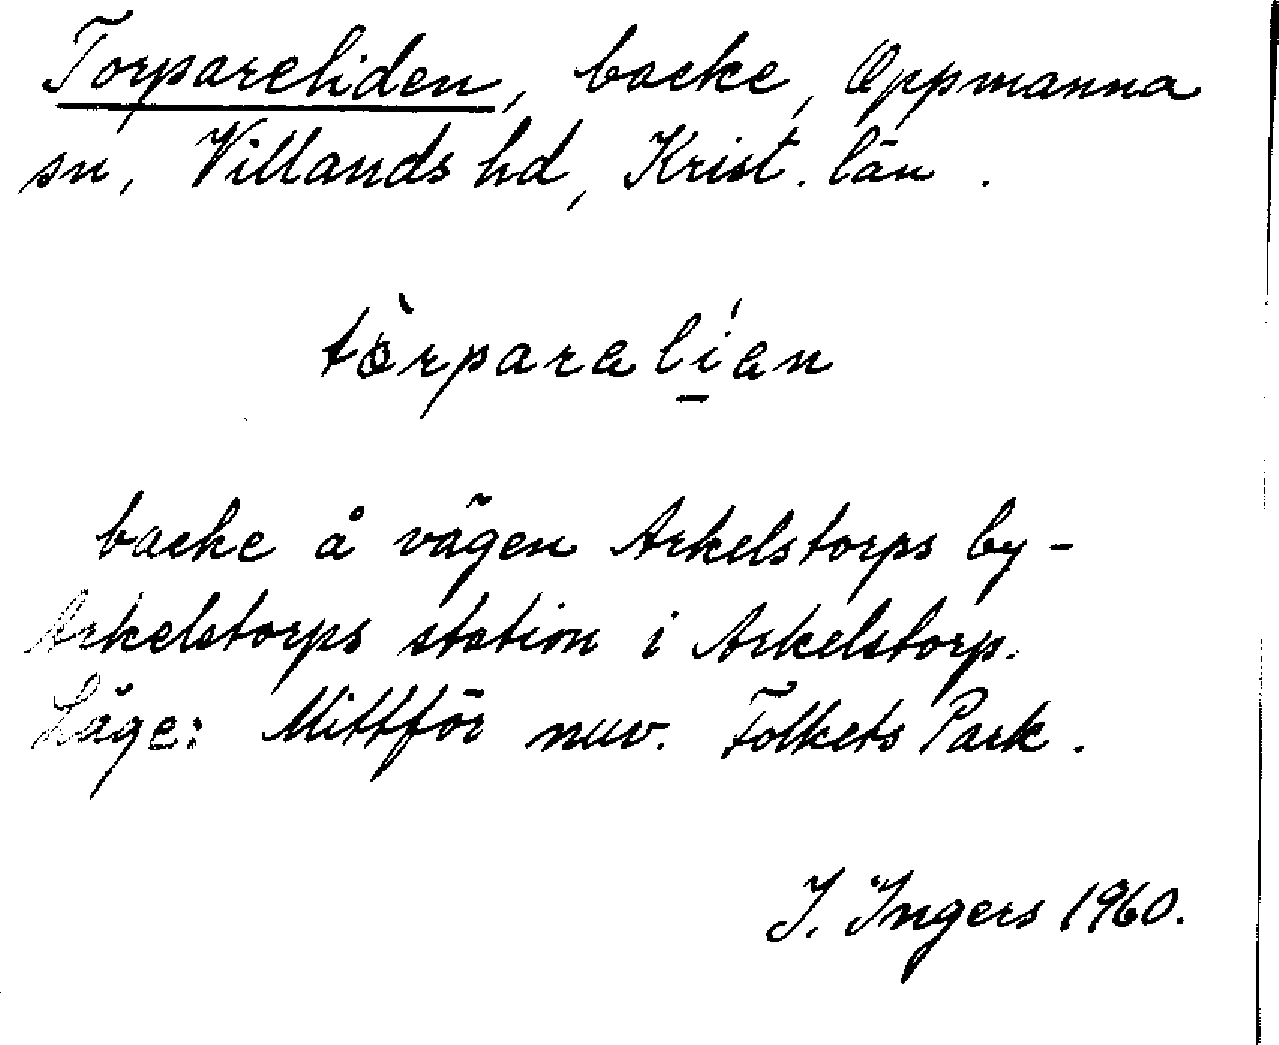 Torpareliden, backe, Oppmanna
sn, Villands hd, Krist. län.
tòrparalían
backe å vägen Arkelstorps by-
Arkelstorps station i Arkelstorp.
Läge: Mittför nuv. Folkets Park.
I. Ingers 1960.